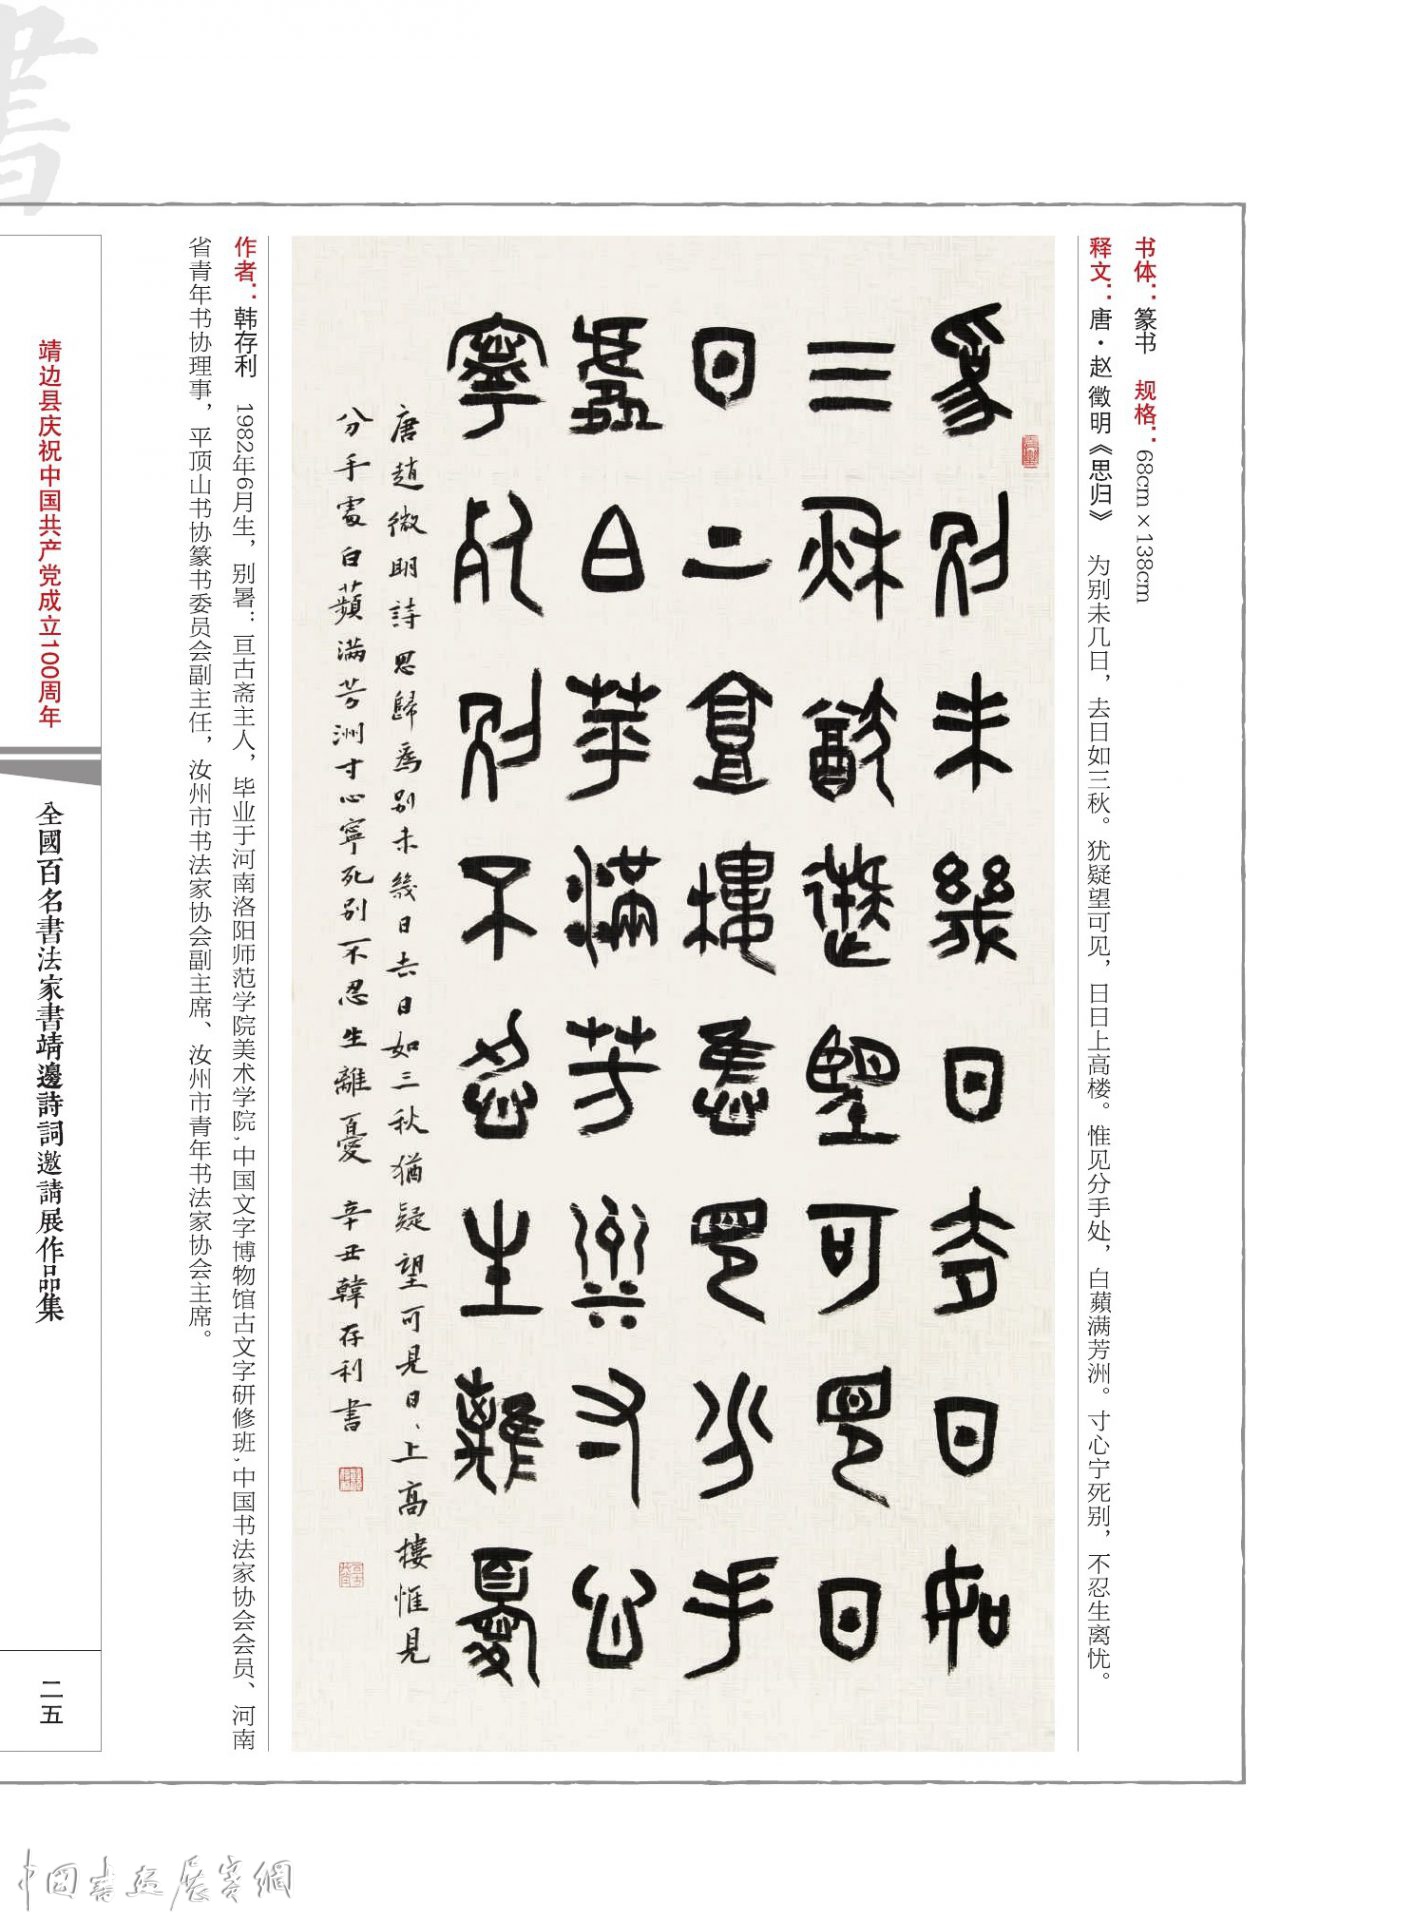 书体：篆书　规格：68cm×138cm
释文：唐·赵徵明《思归》　为别未几日，去日如三秋。犹疑望可见，日日上高楼。惟见分手处，白蘋满芳洲。寸心宁死别，不忍生离忧。
為別未幾日去日如
三秋猶疑望可見日
日上高樓惟見分手
處白苹滿芳洲寸心
寧死別不忍生離憂
唐趙微明詩思歸為别未幾日去日如三秋猶疑望可見日、上高樓惟見
分手處白蘋满芳洲寸心寧死别不忍生離憂　辛丑韓存利書
作者：韩存利　1982年6月生，别署：亘古斋主人，毕业于河南洛阳师范学院美术学院，中国文字博物馆古文字研修班，中国书法家协会会员、河南
省青年书协理事，平顶山书协篆书委员会副主任，汝州市书法家协会副主席、汝州市青年书法家协会主席。
靖边县庆祝中国共产党成立100周年
全國百名書法家書靖邊詩詞邀請展作品集
二五
書
中國書画展赛網